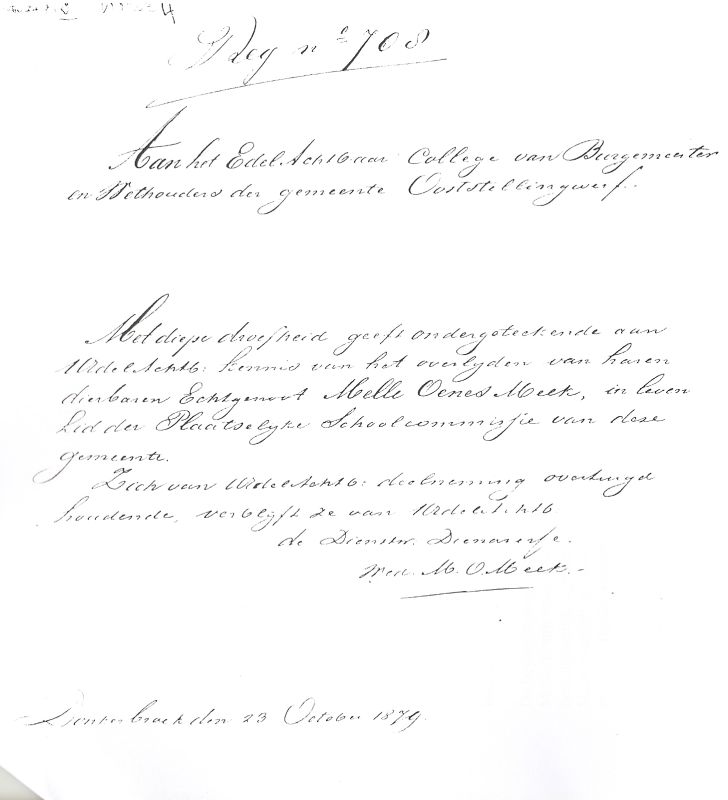 Reg n° 708
Aan het EdelAchtbaar College van Burgemeester
en Wethouders der gemeente Ooststellingwerf.
Met diepe droefheid geeft ondergeteekende aan
UEdelAchtb: kennis van het overlyden van haren
dierbaren Echtgenoot Melle Oenes Meek, in leven
Lid der Plaatselyke Schoolcommissie van deze
gemeente.
Zich van UEdelAchtb: deelneming overtuigd
houdende, verblyft ze van UEdelAchtb
de Dienstw. Dienaresse.
Wed. M. O. Meek.-
Donkerbroek den 23 October 1879.